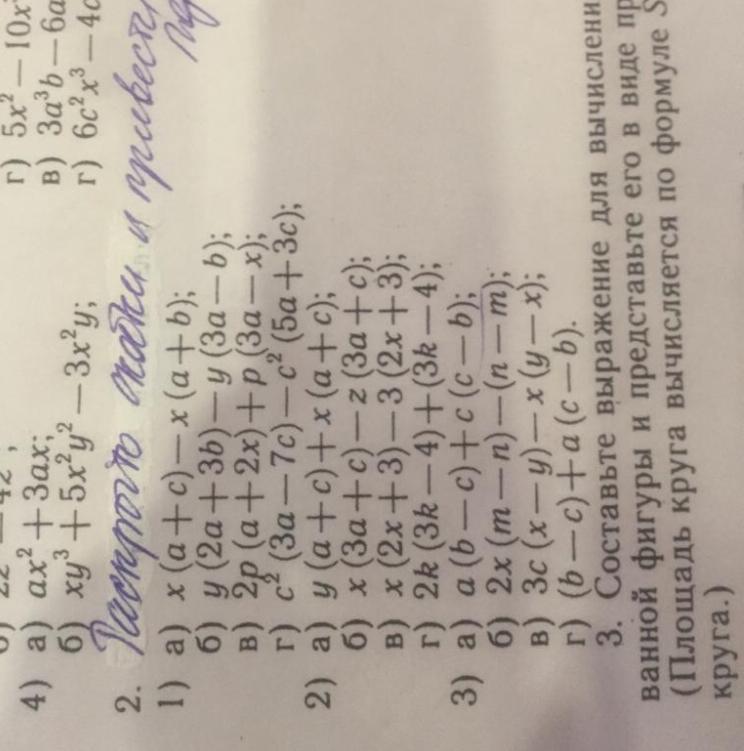 г) 5x² — 10x
в) 3a³b — 6a
г) 6c²x³ — 4c
4) а) ax² + 3ax;
б) xy³ + 5x²y² — 3x²y;
2. Раскройте скобки и привести
1) а) x (a + c) — x (a + b);
б) y (2a + 3b) — y (3a — b);
в) 2p (a + 2x) + p (3a — x);
г) c² (3a — 7c) — c² (5a + 3c);
2) а) y (a + c) + x (a + c);
б) x (3a + c) — z (3a + c);
в) x (2x + 3) — 3 (2x + 3);
г) 2k (3k — 4) + (3k — 4);
3) а) a (b — c) + c (c — b);
б) 2x (m — n) — (n — m);
в) 3c (x — y) — x (y — x);
г) (b — c) + a (c — b).
3. Составьте выражение для вычислени
ванной фигуры и представьте его в виде пр
(Площадь круга вычисляется по формуле S
круга.)